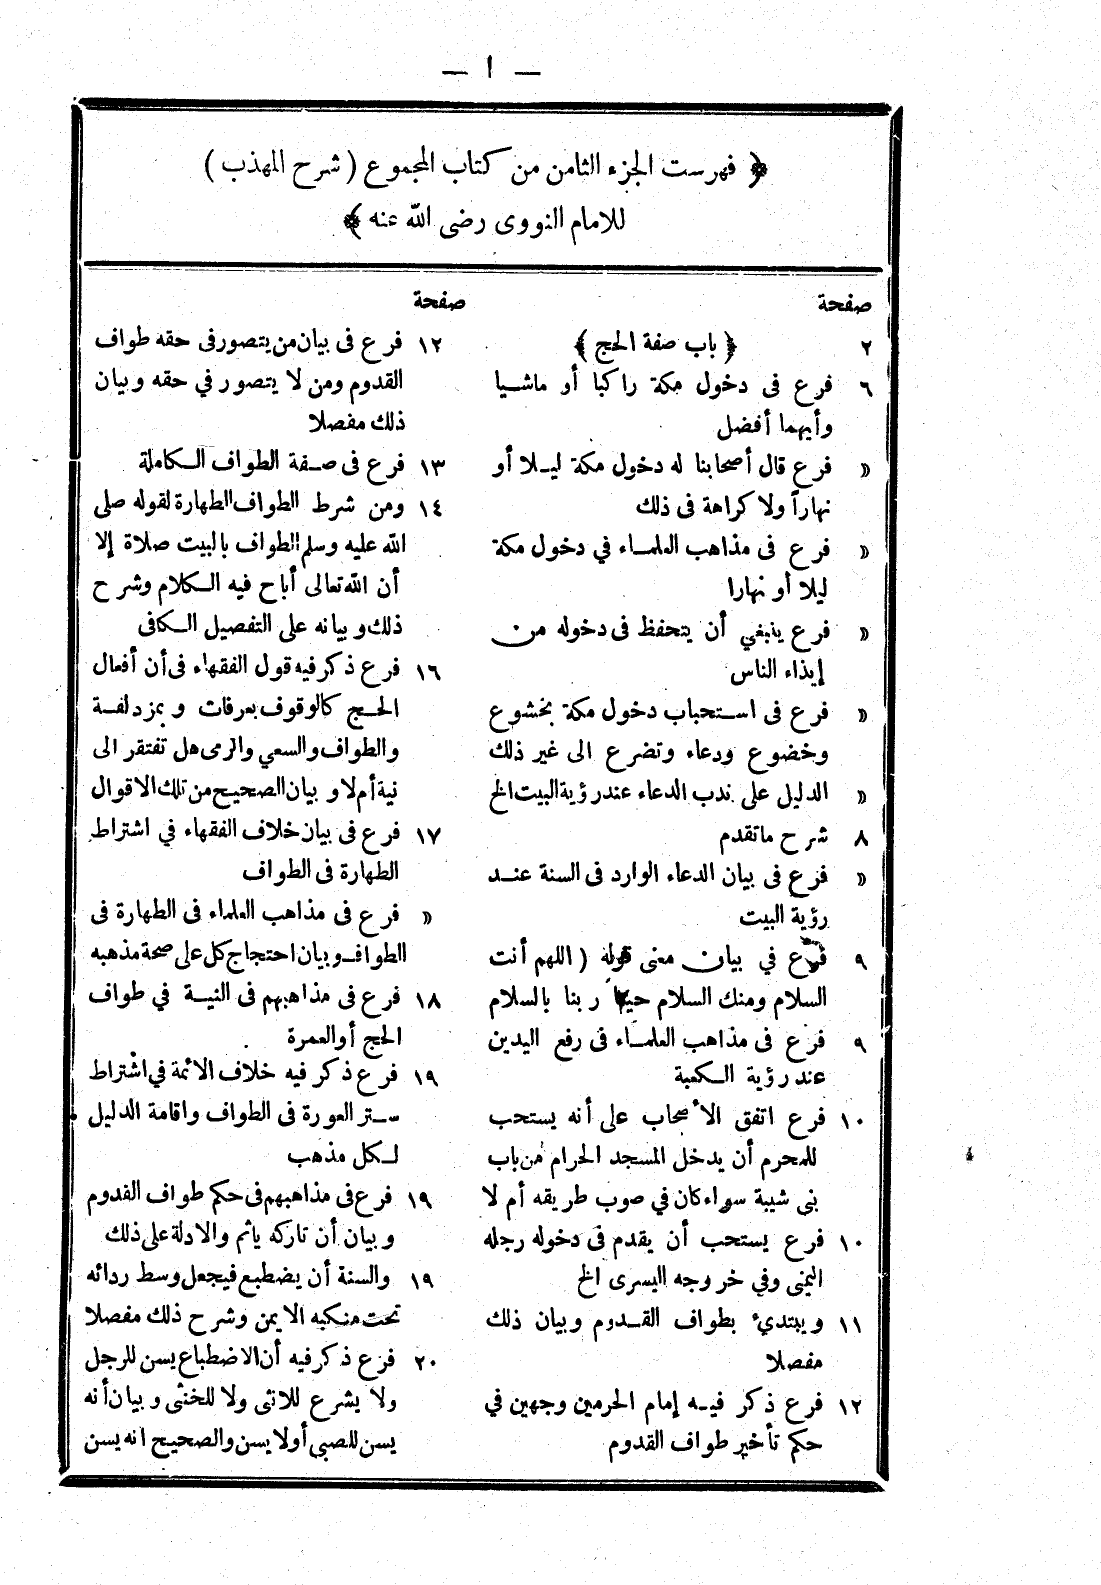 — ١ —
﴿ فهرست الجزء الثامن من كتاب المجموع ( شرح المهذب )
للامام النووى رضى الله عنه ﴾
صفحة
٢ ﴿ باب صفة الحج ﴾
٦ فرع فى دخول مكة راكبا أو ماشيا
وأيهما أفضل
« فرع قال أصحابنا له دخول مكة ليلا أو
نهاراً ولا كراهة فى ذلك
« فرع فى مذاهب العلماء في دخول مكة
ليلا أو نهارا
« فرع ينبغي أن يتحفظ فى دخوله من
إيذاء الناس
« فرع فى استحباب دخول مكة بخشوع
وخضوع ودعاء وتضرع الى غير ذلك
« الدليل على ندب الدعاء عند رؤية البيت الخ
٨ شرح ماتقدم
« فرع فى بيان الدعاء الوارد فى السنة عند
رؤية البيت
٩ فرع في بيان معنى قوله ( اللهم أنت
السلام ومنك السلام حينا ربنا بالسلام
٩ فرع فى مذاهب العلماء فى رفع اليدين
عند رؤية الكعبة
١٠ فرع اتفق الأصحاب على أنه يستحب
للمحرم أن يدخل المسجد الحرام من باب
بنى شيبة سواء كان في صوب طريقه أم لا
١٠ فرع يستحب أن يقدم فى دخوله رجله
اليمنى وفي خروجه اليسرى الخ
١١ ويبتدىء بطواف القدوم وبيان ذلك
مفصلا
١٢ فرع ذكر فيه إمام الحرمين وجهين في
حكم تأخير طواف القدوم
صفحة
١٢ فرع فى بيان من يتصور فى حقه طواف
القدوم ومن لا يتصور في حقه وبيان
ذلك مفصلا
١٣ فرع فى صفة الطواف الكاملة
١٤ ومن شرط الطواف الطهارة لقوله صلى
الله عليه وسلم الطواف بالبيت صلاة إلا
أن الله تعالى أباح فيه الكلام وشرح
ذلك وبيانه على التفصيل الكافى
١٦ فرع ذكر فيه قول الفقهاء فى أن أفعال
الحج كالوقوف بعرفات و بمزدلفة
والطواف والسعي والرمى هل تفتقر الى
نية أم لا و بيان الصحيح من تلك الاقوال
١٧ فرع فى بيان خلاف الفقهاء في اشتراط
الطهارة فى الطواف
« فرع فى مذاهب العلماء فى الطهارة فى
الطواف وبيان احتجاج كل على صحة مذهبه
١٨ فرع فى مذاهبهم فى النية في طواف
الحج أو العمرة
١٩ فرع ذكر فيه خلاف الائمة في اشتراط
ستر العورة فى الطواف واقامة الدليل
لكل مذهب
١٩ فرع فى مذاهبهم فى حكم طواف القدوم
و بيان أن تاركه يأثم والادلة على ذلك
١٩ والسنة أن يضطبع فيجعل وسط ردائه
تحت منكبه الايمن وشرح ذلك مفصلا
٢٠ فرع ذكر فيه أن الاضطباع يسن للرجل
ولا يشرع للانثى ولا للخنثى و بيان أنه
يسن للصبى أو لا يسن والصحيح انه يسن